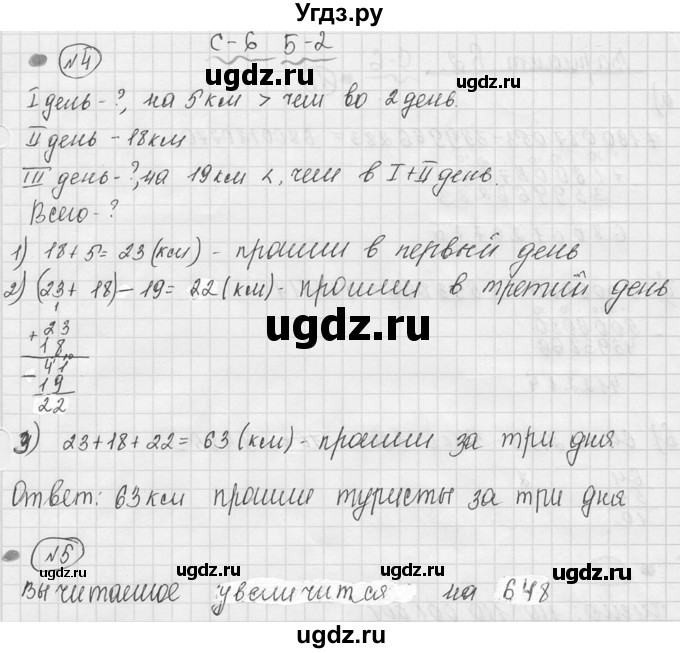 Угдз.ру
С-6 Б-2
№4
ugdz.ru
I день - ?, на 5 км > чем во 2 день.
II день - 18 км
ugdz.ru
III день - ?, на 19 км <, чем в I + II день.
Всего - ?
1) 18 + 5 = 23 (км) - прошли в первый день
ugdz.ru
2) (23 + 18) - 19 = 22 (км) - прошли в третий день
1
+ 23
18
ugdz.ru
- 41
19
22
ugdz.ru
3) 23 + 18 + 22 = 63 (км) - прошли за три дня
ugdz.ru
Ответ: 63 км прошли туристы за три дня
№5
ugdz.ru
Вычитаемое увеличится на 648
ugdz.ru